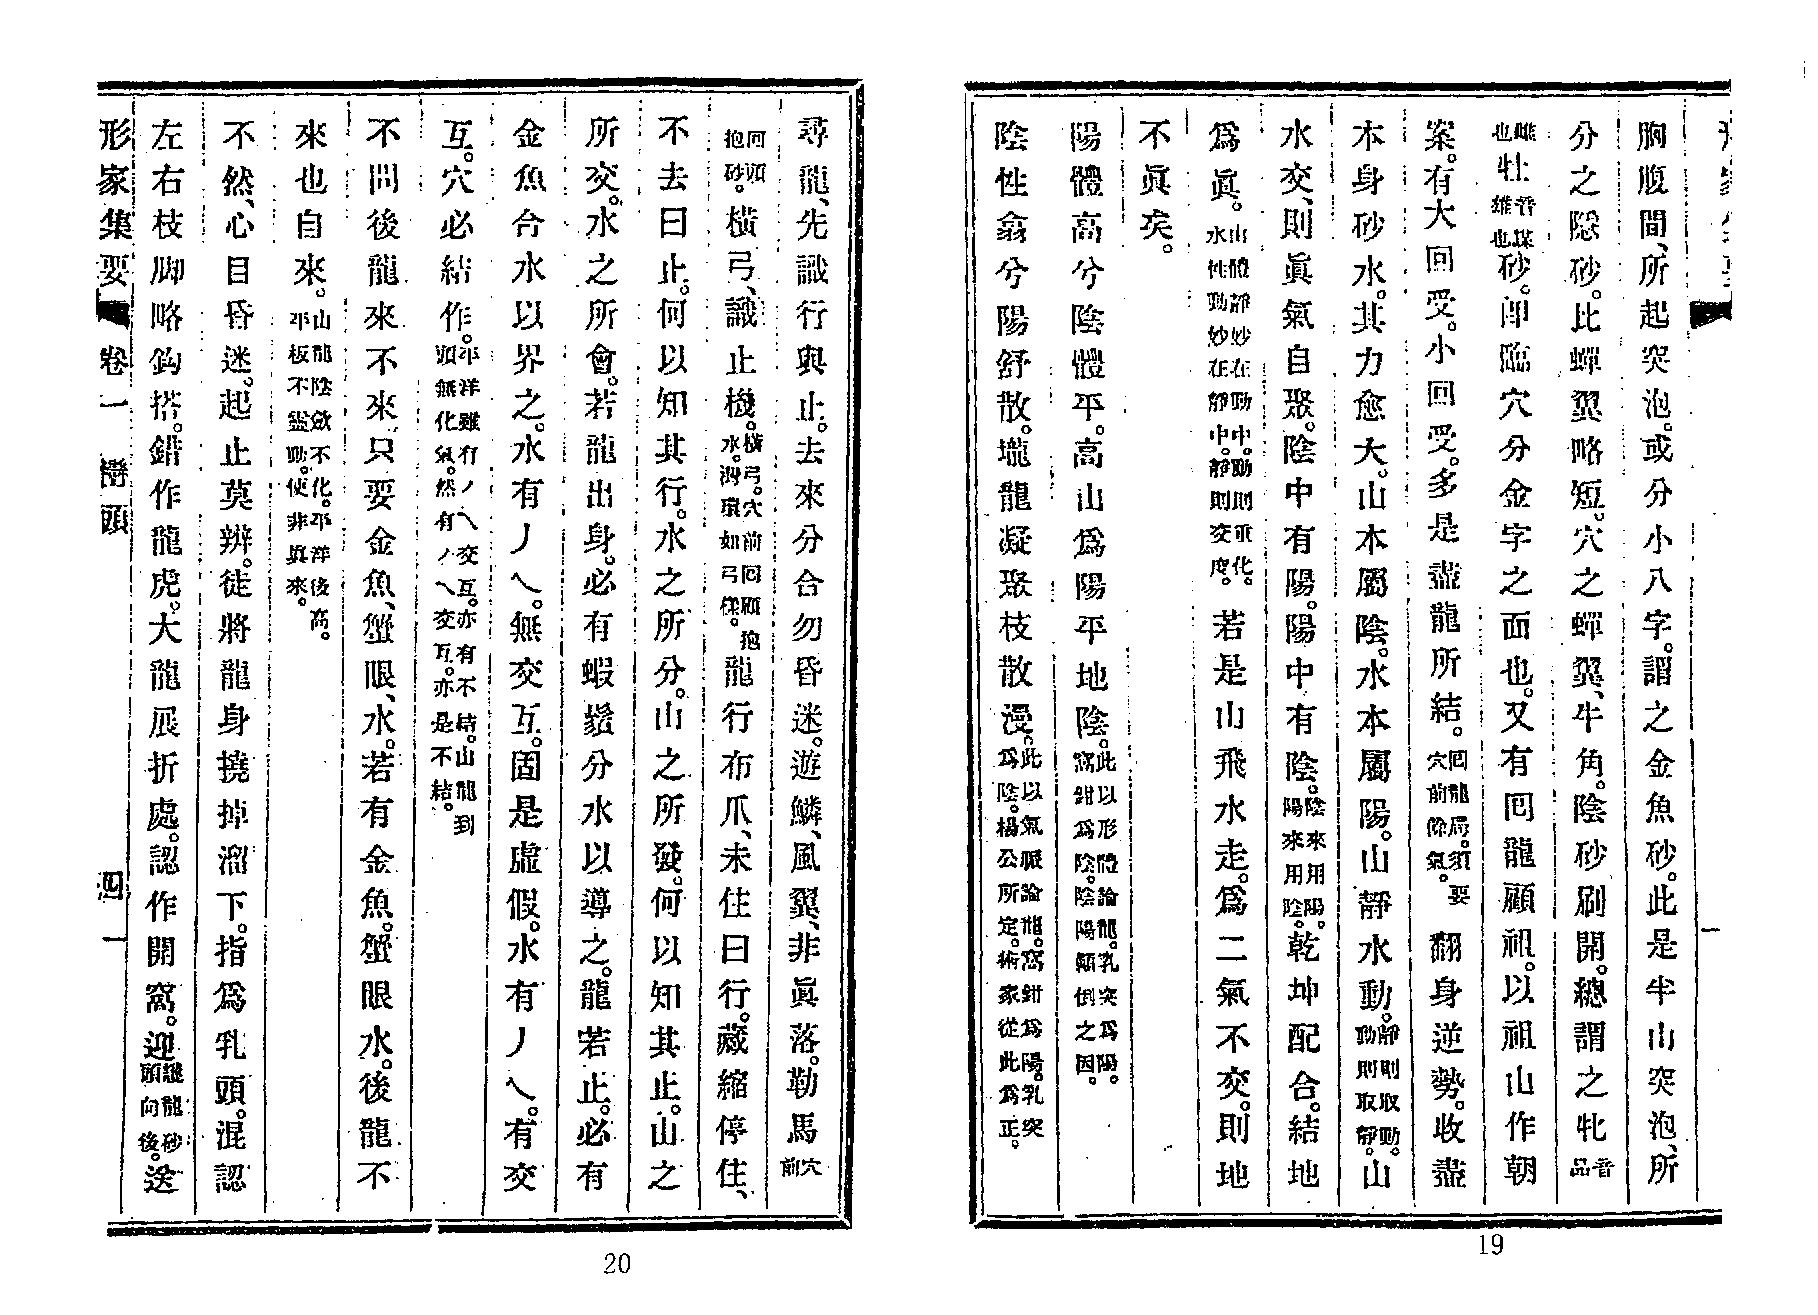 胸腹間、所起突泡。或分小八字。謂之金魚砂。此是半山突泡、所
分之隱砂。比蟬翼略短。穴之蟬翼、牛角。陰砂刷開。總謂之牝音品
雌也牡音謀雄也砂。即臨穴分金字之面也。又有囘龍顧祖。以祖山作朝
案。有大回受。小回受。多是盡龍所結。囘龍局。須要穴前餘氣。翻身逆勢。收盡
本身砂水。其力愈大。山本屬陰。水本屬陽。山靜水動。靜則取動。動則取靜。山
水交、則眞氣自聚。陰中有陽。陽中有陰。陰來用陽。陽來用陰。乾坤配合。結地
爲眞。山體靜妙在動中。動則重化。水性動妙在靜中。靜則交度。若是山飛水走。爲二氣不交。則地
不眞矣。
陽體高兮陰體平。高山爲陽平地陰。此以形體論龍。乳突爲陽。窩鉗爲陰。陰陽顛倒之因。
陰性翕兮陽舒散。壠龍凝聚枝散漫。此以氣脈論龍。窩鉗爲陽。乳突爲陰。楊公所定。術家從此爲正。
19
尋龍、先識行與止。去來分合勿昏迷。遊鱗、風翼、非眞落。勒馬穴前
回頭抱砂。橫弓、識止機。橫弓。穴前囘顧抱水。灣環如弓樣。龍行布爪、未住曰行。藏縮停住、
不去曰止。何以知其行。水之所分。山之所發。何以知其止。山之
所交。水之所會。若龍出身。必有蝦鬚分水以導之。龍若止。必有
金魚合水以界之。水有丿乀。無交互。固是虛假。水有丿乀。有交
互。穴必結作。平洋雖有丿乀交互。亦有不結。山龍到頭無化氣。然有丿乀交互。亦是不結。
不問後龍來不來。只要金魚、蟹眼、水。若有金魚。蟹眼水。後龍不
來也自來。山龍陰斂不化。平洋後高。平板不靈動。使非眞來。
不然、心目昏迷。起止莫辨。徒將龍身撓掉溜下。指爲乳頭。混認
左右枝脚略鈎搭。錯作龍虎。大龍展折處。認作開窩。迎護龍砂頭向後。送
形家集要 卷一 巒頭 四
20